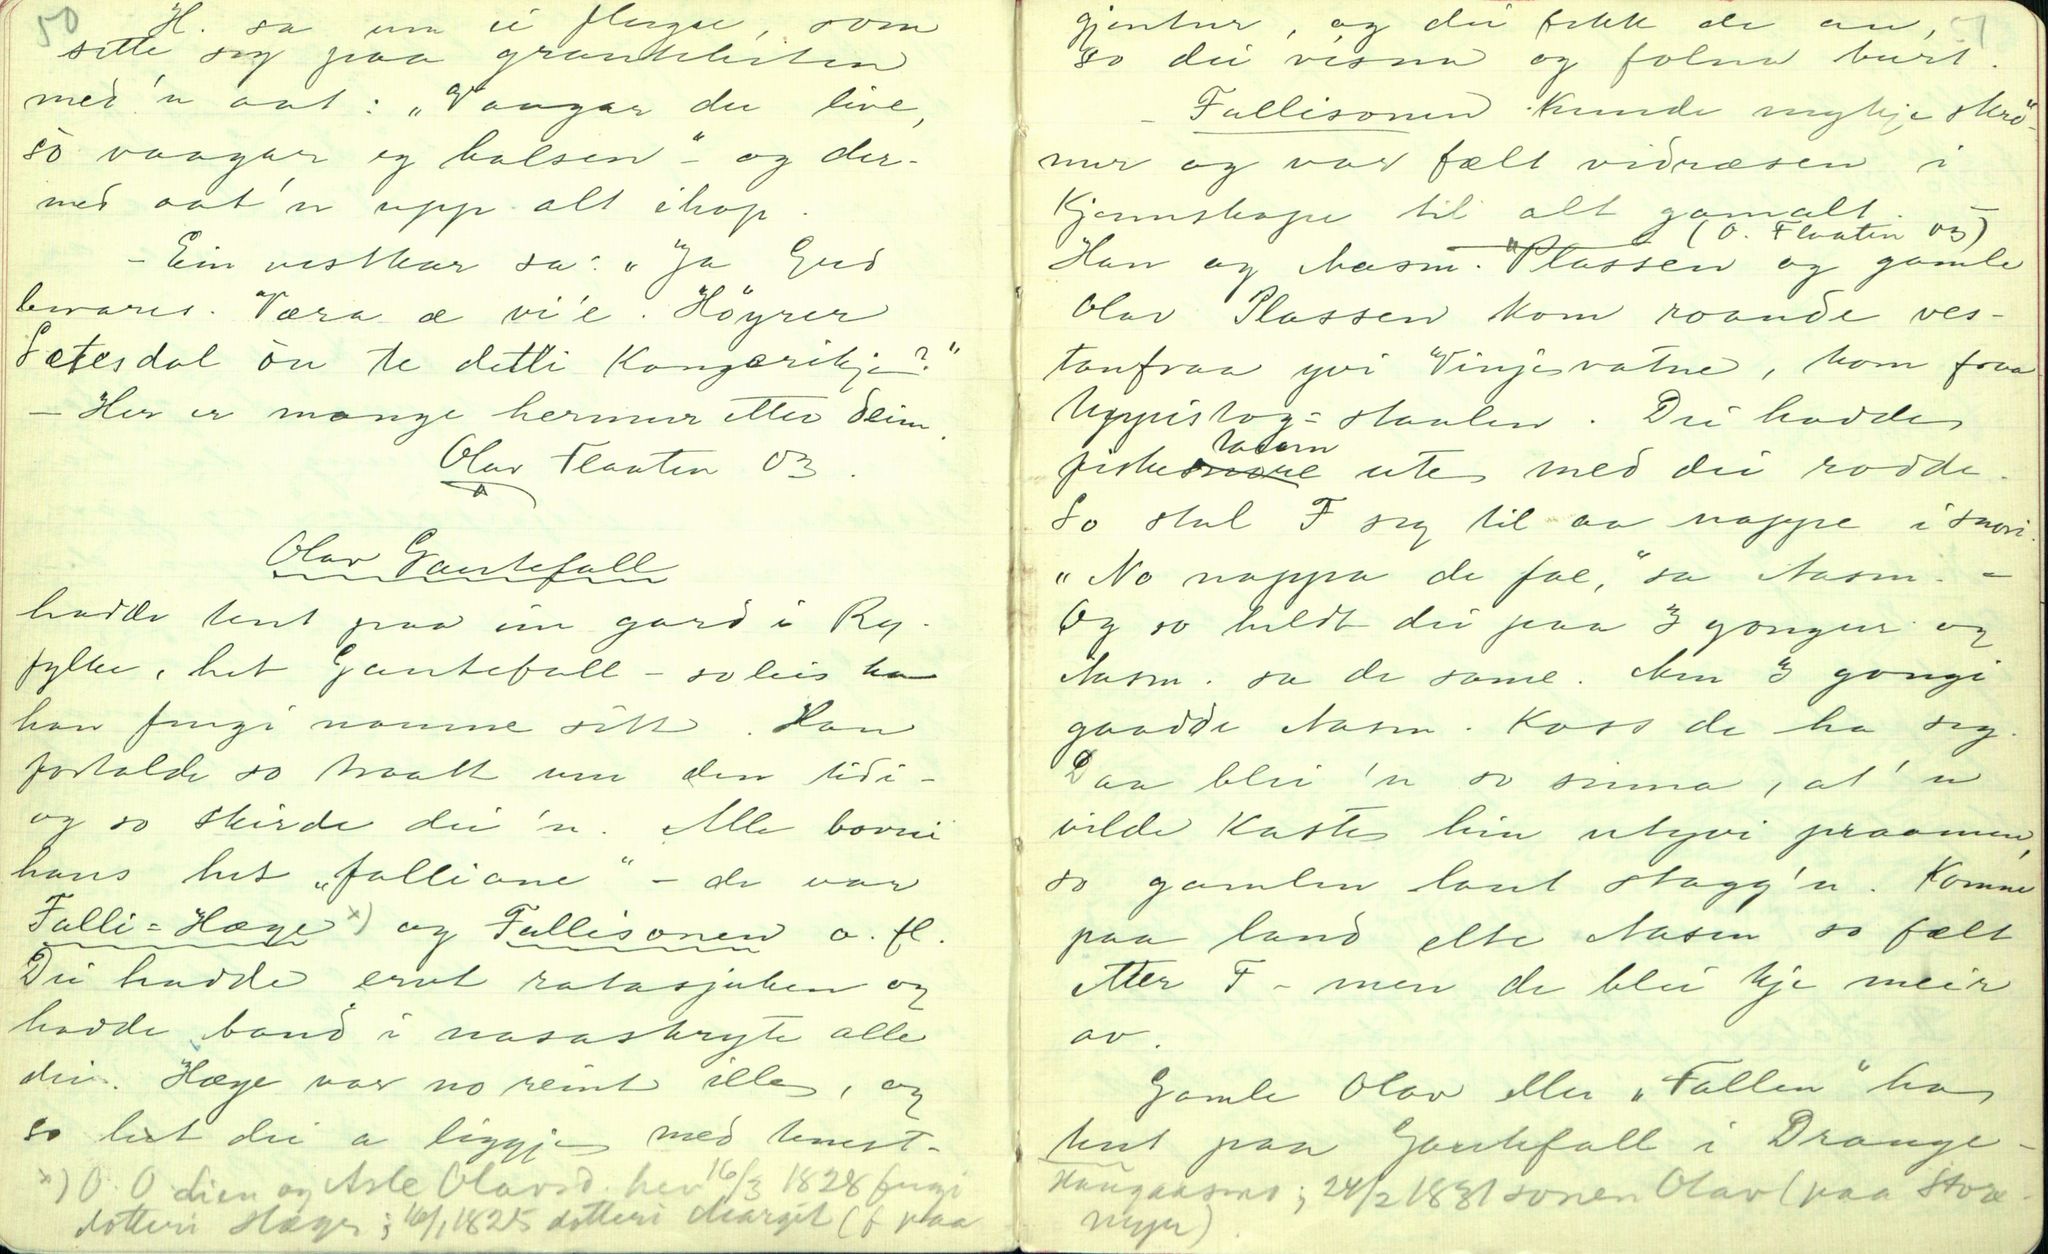 50
H. sa um ei fluge, som
sette seg paa grautkleten
med'n aat: „Vaagar du live,
so vaagar eg halsen" – og der-
med aat'n upp alt ihop.
– Ein vestkar sa: „Ja Gud
bevares. Væra æ vi'e. Höyrer
Sætesdal òn te detti Kongerikje?"
– Her er mange hermur etter deim.
Olav Flaaten 03.
Olav Gautefall
hadde tent paa ein gard i Ry-
fylke, het Gautefall – soleis
han fengi namne sitt. Han
fortalde so braatt um den tidi –
og so skirde dei 'n. Alle borni
hans het „falliane" – de var
Falli-Hæge x) og Fallisonen o. fl.
Dei hadde ervt ratasjuken og
hadde band i nasaskryte alle
dei. Hæge var no reint ille, og
so let dei a liggje med tenest-
x) O. O dien og Asle Olavsd. hev 16/3 1828 fengi
dotteri Hæge; 16/1 1825 dotteri Margit (f paa
51
gjentur, og dei fekk de au,
so dei visna og folna burt.
– Fallisonen kunde mykje skrö-
nur og var fælt vidræsen i
Kjennskape til alt gamalt.
(O. Flaaten 03)
Han og Aasm. Plassen og gamle
Olav Plassen kom roande ves-
tanfraa yvi Vinjevatne, kom fraa
Uppistog-staulen. Dei hadde
fiskesnöre ute med dei rodde.
So stal F seg til aa nappe i snöri.
„No nappa de fal," sa Aasm. –
Og so heldt dei paa 3 gongur og
Aasm. sa de same. Men 3 gongi
gaadde Aasm. Koss de ha seg.
Daa blei 'n so sinna, at 'n
vilde Kaste hin utyvi praamen,
so gamlen laut stagg'n. Komne
paa land elte Aasm so fælt
etter F – men de blei kje meir
av.
Gamle Olav eller „Fallen" ha
tent paa Gautefall i Drange-
Haugaasmo; 24/2 1831 sonen Olav (paa Store-
myr).